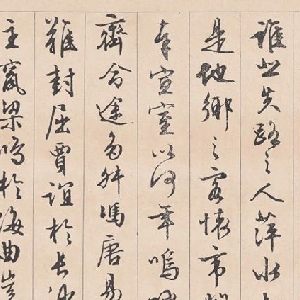 誰悲失路之人萍水
是他鄉之客懷帝
奉宣室以何年嗚
齊命途多舛馮唐易
難封屈賈誼於長沙
主竄梁鴻於海曲豈